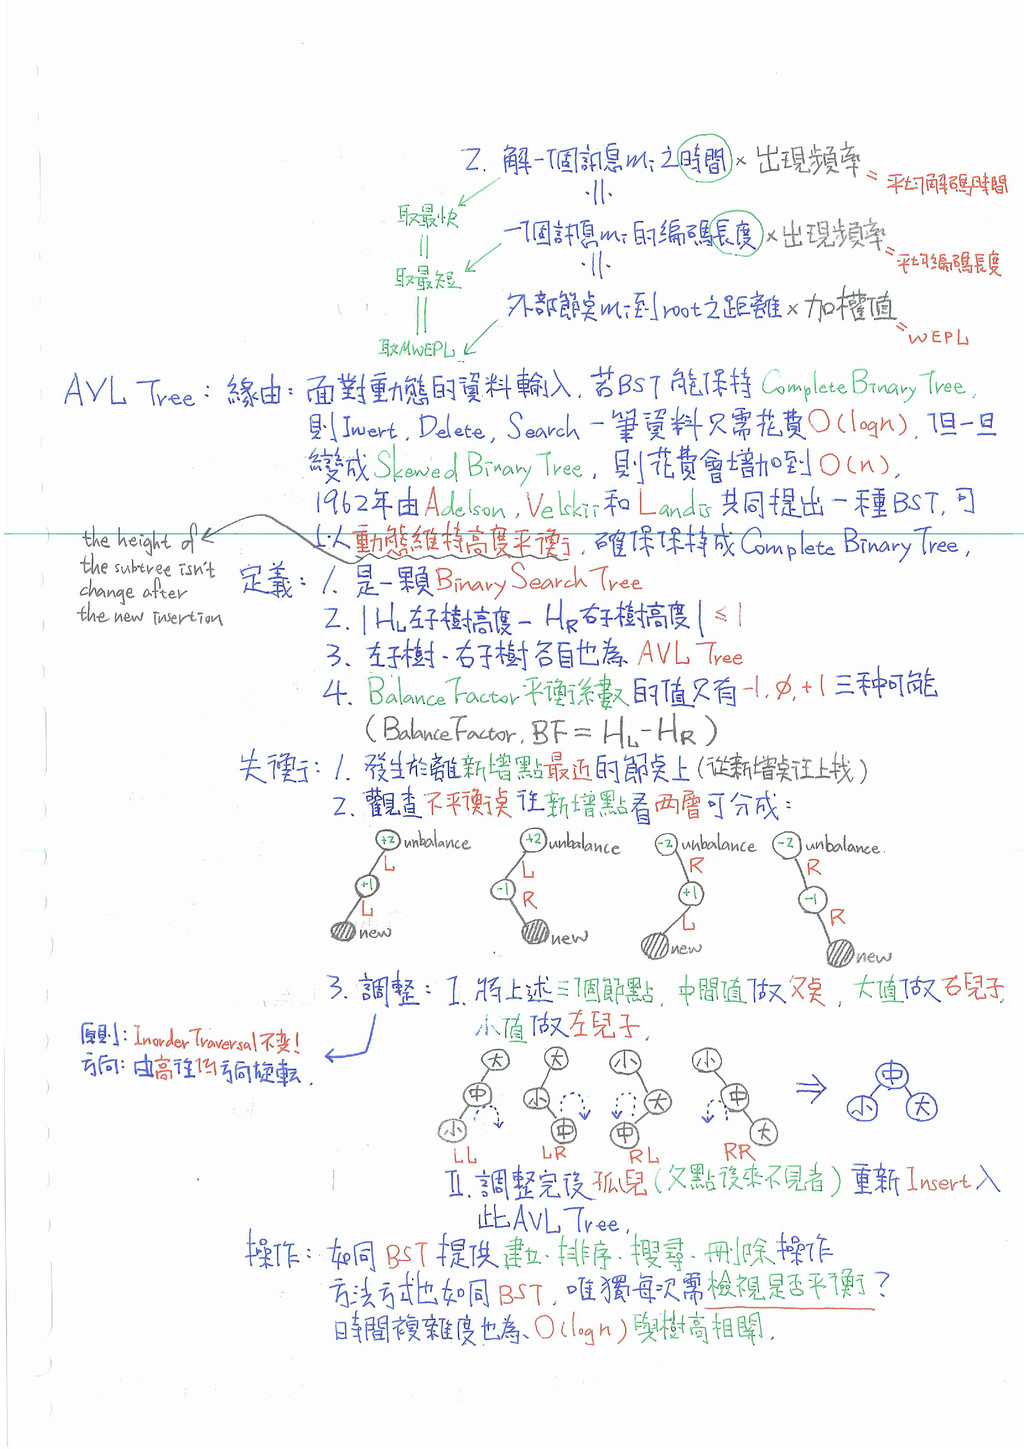 2. 解一個訊息mᵢ之時間 × 出現頻率 = 平均解碼時間
取最快
一個訊息mᵢ的編碼長度 × 出現頻率 = 平均編碼長度
取最短
外部節點mᵢ到root之距離 × 加權值 = WEPL
取MWEPL
AVL Tree: 緣由: 面對動態的資料輸入, 若BST能保持Complete Binary Tree,
則Insert, Delete, Search一筆資料只需花費O(logn), 但一旦
變成Skewed Binary Tree, 則花費會增加到O(n),
1962年由Adelson, Velskii和Landis共同提出一種BST, 可
以動態維持高度平衡, 確保保持成Complete Binary Tree,
the height of
the subtree isn't
change after
the new insertion
定義: 1. 是一顆Binary Search Tree
2. |HL左子樹高度 - HR右子樹高度| ≤ 1
3. 左子樹、右子樹各自也為AVL Tree
4. Balance Factor平衡係數的值只有-1, ∅, +1三種可能
(Balance Factor, BF = HL-HR)
失衡: 1. 發生於離新增點最近的節點上(從新增點往上找)
2. 觀查不平衡點往新增點看兩層可分成:
+2 unbalance L +1 L new
+2 unbalance L -1 R new
-2 unbalance R +1 L new
-2 unbalance. R -1 R new
3. 調整: I. 將上述三個節點, 中間值做父點, 大值做右兒子,
小值做左兒子,
原則: Inorder Traversal不変!
方向: 由高往低方向旋転.
大 中 小 LL
大 小 中 LR
小 大 中 RL
小 中 大 RR
⇒ 中 小 大
II. 調整完後孤兒(父點後來不見者)重新Insert入
此AVL Tree,
操作: 如同BST提供建立、排序、搜尋、刪除操作
方法方式也如同BST, 唯獨每次需檢視是否平衡?
時間複雜度也為、O(logn)與樹高相關.